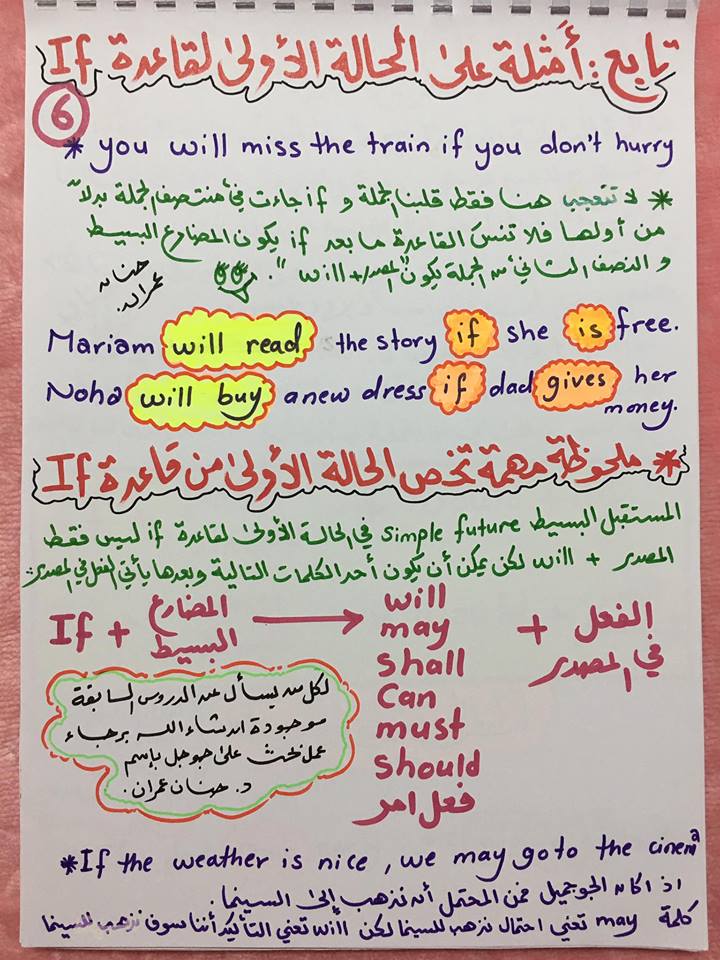 تابع: أمثلة على الحالة الأولى لقاعدة If
6
* you will miss the train if you don't hurry
* لا تتعجب هنا فقط قلبنا الجملة و if جاءت في منتصف الجملة بدلاً
من أولها فلا تنسَ القاعدة ما بعد if يكون المضارع البسيط
و النصف الثاني من الجملة يكون "المصدر + will".
حنان
عمران.
Mariam will read the story if she is free.
Noha will buy a new dress if dad gives her
money.
* ملحوظة مهمة تخص الحالة الأولى من قاعدة If
المستقبل البسيط simple future في الحالة الأولى لقاعدة if ليس فقط
المصدر + will لكن يمكن أن يكون أحد الكلمات التالية وبعدها يأتي الفعل في المصدر:
If + المضارع البسيط → will
may
shall
Can
must
should
فعل امر
+ الفعل
في المصدر
لكل من يسأل عن الدروس السابقة
موجودة ان شاء الله برجاء
عمل بحث على جوجل بإسم
د. حنان عمران.
* If the weather is nice, we may go to the cinema
اذا كان الجو جميل فمن المحتمل أن نذهب إلى السينما.
كلمة may تعني احتمال نذهب للسينما لكن will تعني التأكيد أننا سوف نذهب للسينما